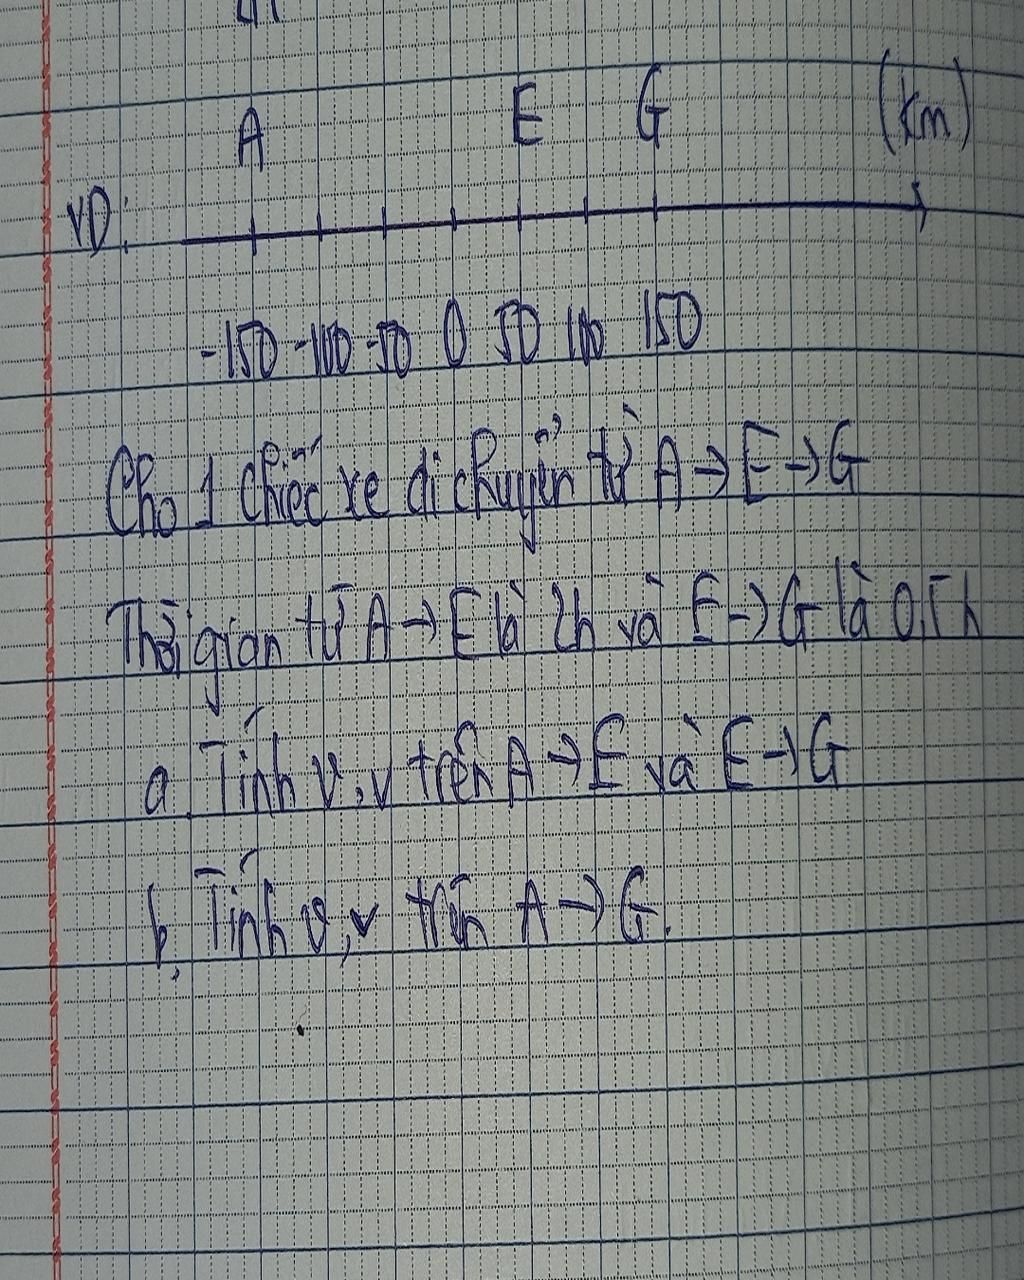 A E G (km)
VD:
-150 -100 -50 0 50 100 150
Cho 1 chiếc xe di chuyển từ A → E → G
Thời gian từ A → E là 2h và E → G là 0,5h
a Tính v, v trên A → E và E → G
b, Tính v, v trên A → G.